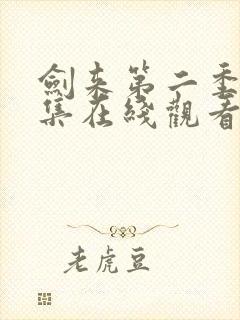 劍来第二季
集在綫觀看
老虎豆